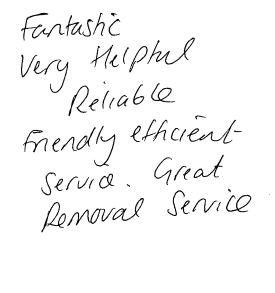 Fantastic
Very Helpful
Reliable
Friendly efficient
Service. Great
Removal Service